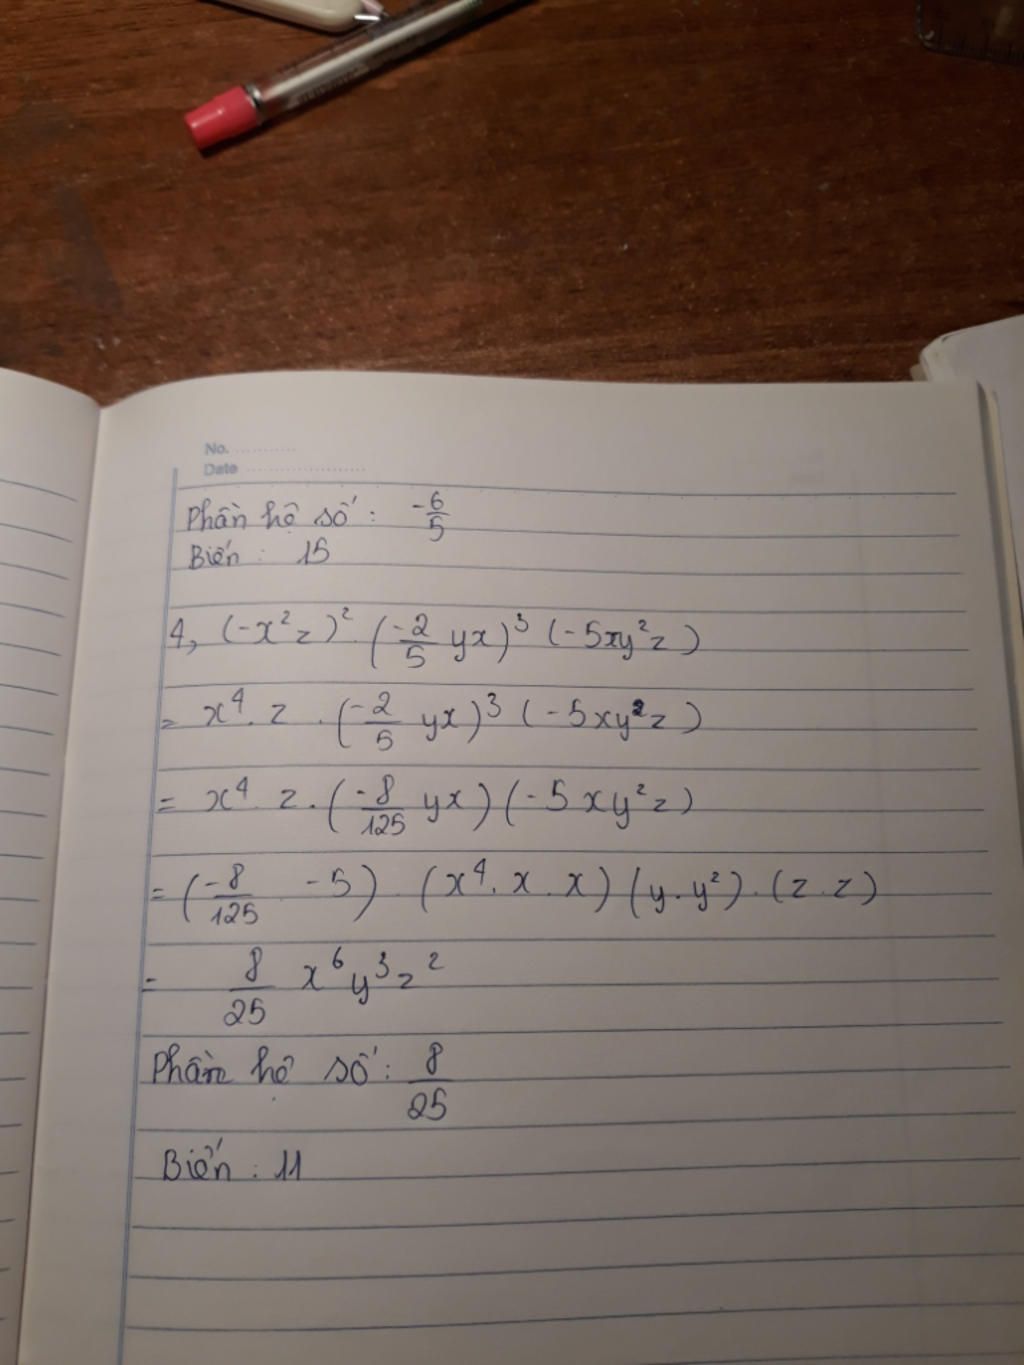 No. ..........
Date ....................
Phần hệ số : -6/5
Biến : 15
4, (-x²z)² . (-2/5 yx)³ (-5xy²z)
= x⁴ . z . (-2/5 yx)³ (-5xy²z)
= x⁴ . z . (-8/125 yx) (-5xy²z)
= (-8/125 . -5) . (x⁴ . x . x) (y . y²) . (z . z)
= 8/25 x⁶y³z²
Phần hệ số : 8/25
Biến : 11